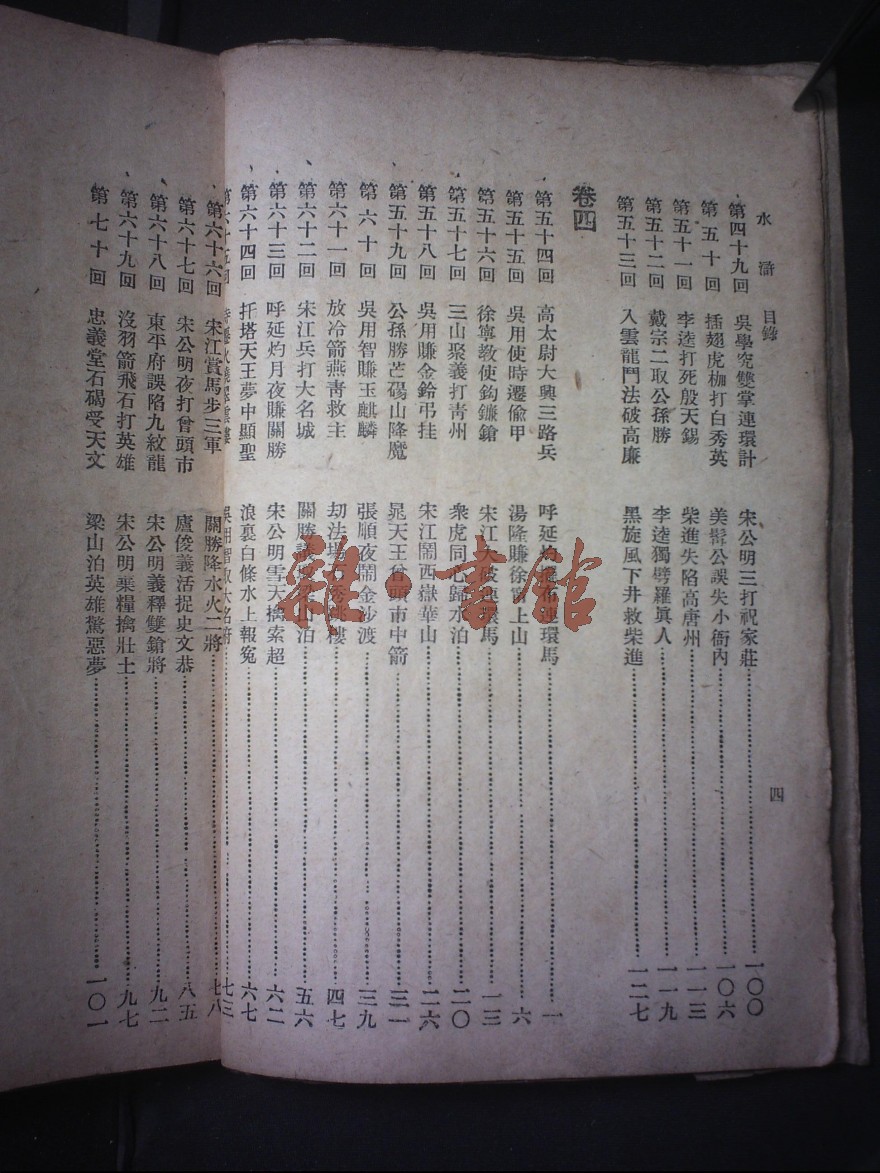 水滸 目錄 四
第四十九回 吳學究雙掌連環計 宋公明三打祝家莊 一〇〇
第五十回 插翅虎枷打白秀英 美髯公誤失小衙內 一〇六
第五十一回 李逵打死殷天錫 柴進失陷高唐州 一一三
第五十二回 戴宗二取公孫勝 李逵獨劈羅眞人 一一九
第五十三回 入雲龍鬥法破高廉 黑旋風下井救柴進 一二七
卷四
第五十四回 高太尉大興三路兵 呼延灼擺布連環馬 一
第五十五回 吳用使時遷偸甲 湯隆賺徐寧上山 六
第五十六回 徐寧敎使鈎鐮鎗 宋江大破連環馬 一三
第五十七回 三山聚義打靑州 衆虎同心歸水泊 二〇
第五十八回 吳用賺金鈴弔挂 宋江鬧西嶽華山 二六
第五十九回 公孫勝芒碭山降魔 晁天王曾頭市中箭 三一
第六十回 吳用智賺玉麒麟 張順夜鬧金沙渡 三九
第六十一回 放冷箭燕靑救主 劫法場石秀跳樓 四七
第六十二回 宋江兵打大名城 關勝議取梁山泊 五六
第六十三回 呼延灼月夜賺關勝 宋公明雪天擒索超 六二
第六十四回 托塔天王夢中顯聖 浪裏白條水上報寃 六七
第六十五回 時遷火燒翠雲樓 吳用智取大名府 七三
第六十六回 宋江賞馬步三軍 關勝降水火二將 七八
第六十七回 宋公明夜打曾頭市 盧俊義活捉史文恭 八五
第六十八回 東平府誤陷九紋龍 宋公明義釋雙鎗將 九二
第六十九回 沒羽箭飛石打英雄 宋公明棄糧擒壯士 九七
第七十回 忠義堂石碣受天文 梁山泊英雄驚惡夢 一〇一
雜·書館